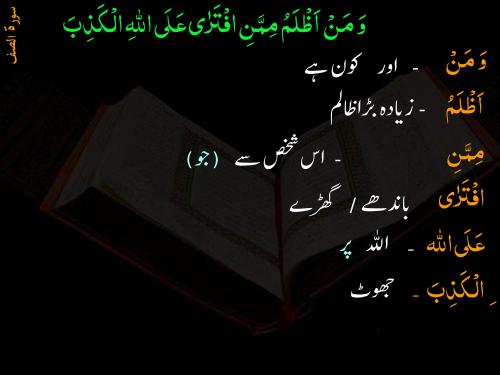 وَ مَنْ اَظْلَمُ مِمَّنِ افْتَرٰى عَلَى اللّٰهِ الْكَذِبَ
سورة الصف
وَ مَنْ - اور کون ہے
اَظْلَمُ - زیادہ بڑا ظالم
مِمَّنِ - اس شخص سے (جو)
افْتَرٰى باندھے / گھڑے
عَلَى اللّٰه - اللہ پر
ِ الْكَذِبَ - جھوٹ